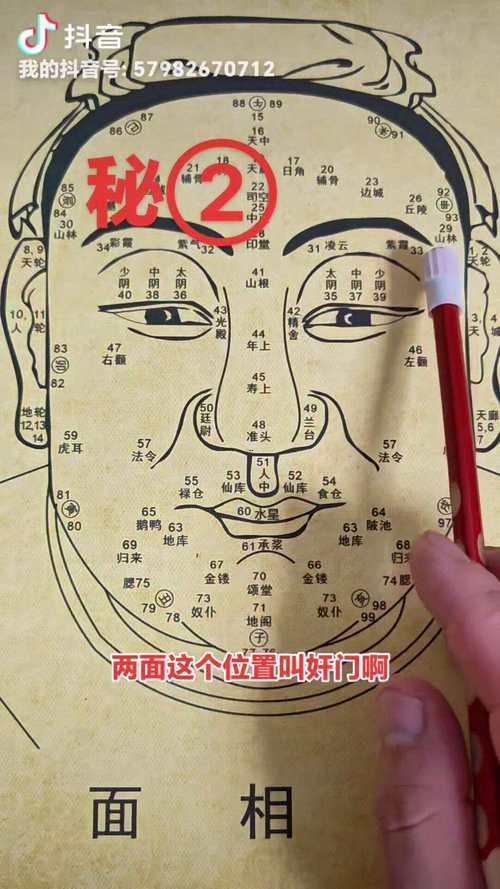 抖音
我的抖音号: 57982670712
秘②
88 89
15
87
86
16 天中
90
91
18
17 日角
21 辅骨
20 辅骨
22 司空
23 边城
26 丘陵
25
85
84
92
93
30 山林
29 山林
34 彩霞
紫气 32
28 印堂
31 凌云
紫霞 33
8, 9 天轮
少阴 40
中阴 38
太阴 36
41 山根
太阴 35
中阴 37
少阴 39
10, 11 人轮
43 光殿
42 精舍
44 年上
83
82
47 右颧
46 左颧
45 寿上
地轮 12,13 14
50 廷尉
49 兰台
48 准头
天廊 5,6 7
59 虎耳
57 法令
57 法令
51 人中
55 禄仓
53 仙库
52 仙库
54 食仓
81
80
65 鹅鸭
60 水星
64 陂池
97
63 地库
63 地库
69 归来
61 承浆
68 归来
67 金镂
66 金镂
腮75
70 颂堂
74腮
79
78
73 奴仆
71 地阁
73 奴仆
98
99
子
两面这个位置叫奸门啊
面 相